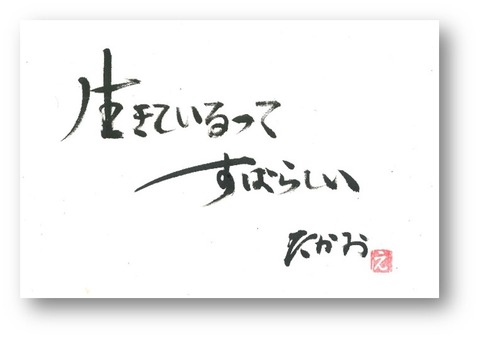 生きているって
すばらしい
たかお
え